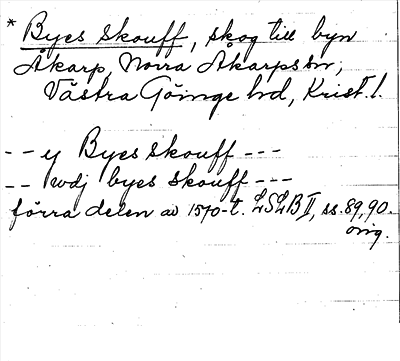 * Byes Skouff, skog till byn
Åkarp, Norra Åkarps sn,
Västra Göinge hd, Krist. l.
- - y Byes Skouff - - -
- - wdj byes skouff - - -
förra delen av 1570-t. LSLB II, ss. 89, 90.
orig.